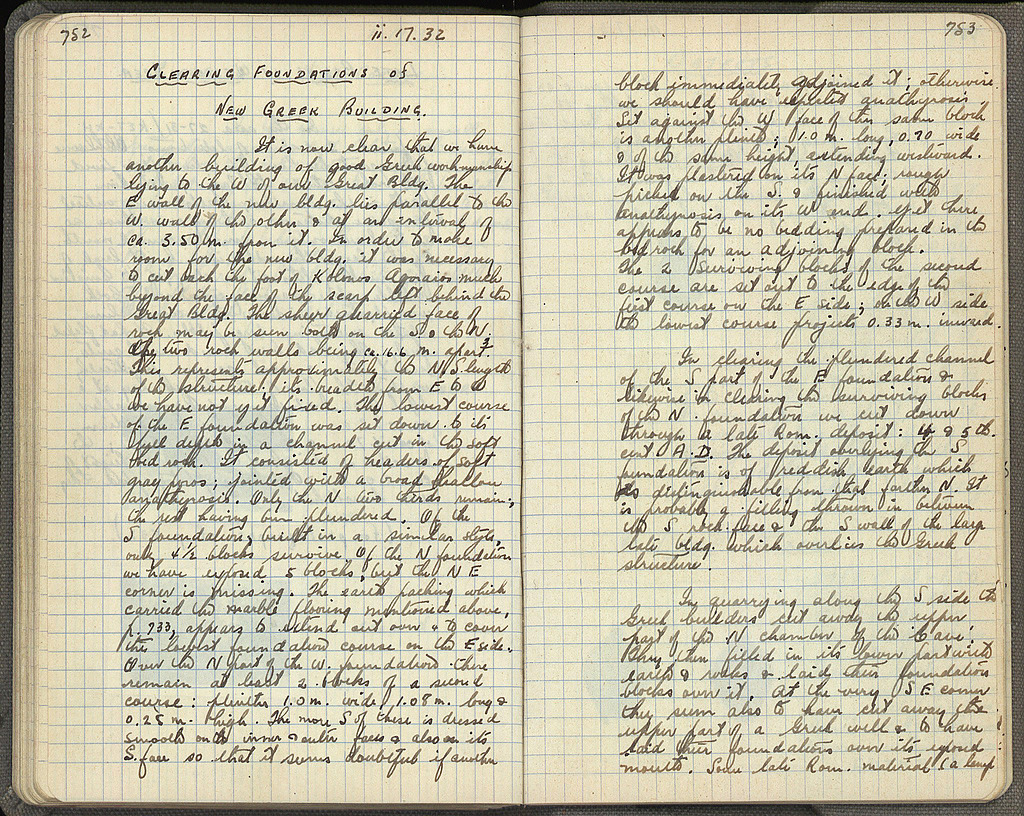 752
ii. 17. 32
CLEARING FOUNDATIONS of
NEW GREEK BUILDING.
It is now clear that we have
another building of good Greek workmanship
lying to the W of our Great Bldg. The
E wall of the new bldg. lies parallel to the
W. wall of the other & at an interval of
ca. 3.50 m. from it. In order to make
room for the new bldg. it was necessary
to cut back the foot of Kolonos Agoraios much
beyond the face of the scarp left behind the
Great Bldg. The sheer quarried face of
rock may be seen both on the S & the N.
the two rock walls being ca. 16.6 m. apart.
This represents approximately the N.S. length
of the structure: its breadth from E to W
we have not yet fixed. The lowest course
of the E foundation was set down to its
full depth in a channel cut in the soft
bed rock. It consisted of headers of soft
gray poros; jointed with a broad shallow
anathyrosis. Only the N two thirds remain;
the rest having been plundered. Of the
S foundation, built in a similar style,
only 4½ blocks survive. Of the N foundation
we have exposed 5 blocks, but the NE
corner is missing. The earth packing which
carried the marble flooring mentioned above,
p. 733, appears to extend out over & to cover
the lowest foundation course on the E side.
Over the N part of the W. foundation there
remain at least 2 blocks of a second
course: plinths 1.0 m. wide, 1.08 m. long &
0.25 m. high. The more S of these is dressed
smooth on its inner & outer faces & also on its
S. face so that it seems doubtful if another
753
block immediately adjoined it; otherwise
we should have expected anathyrosis.
Set against the W face of this same block
is another plinth; 1.0 m. long, 0.70 wide
& of the same height, extending westward.
It was plastered on its N face; rough
picked on its S. & finished with
anathyrosis on its W end. Yet there
appears to be no bedding prepared in the
bedrock for an adjoining block.
The 2 surviving blocks of the second
course are set out to the edge of the
first course on the E side; on the W side
the lowest course projects 0.33 m. inward.
In clearing the plundered channel
of the S part of the E foundation &
likewise in clearing the surviving blocks
of the N. foundation we cut down
through a late Rom. deposit: 4 & 5th.
cent A.D. The deposit overlying the S
foundation is of reddish earth which
is distinguishable from that farther N. It
is probably a filling thrown in between
the S rock face & the S wall of the large
late bldg. which overlies the Greek
structure.
In quarrying along the S side the
Greek builders cut away the upper
part of the N chamber of the Cave.
They then filled in its lower part with
earth & rocks & laid their foundation
blocks over it. At the very SE corner
they seem also to have cut away the
upper part of a Greek well & to have
laid their foundations over its exposed
mouth. Some late Rom. material (a lamp